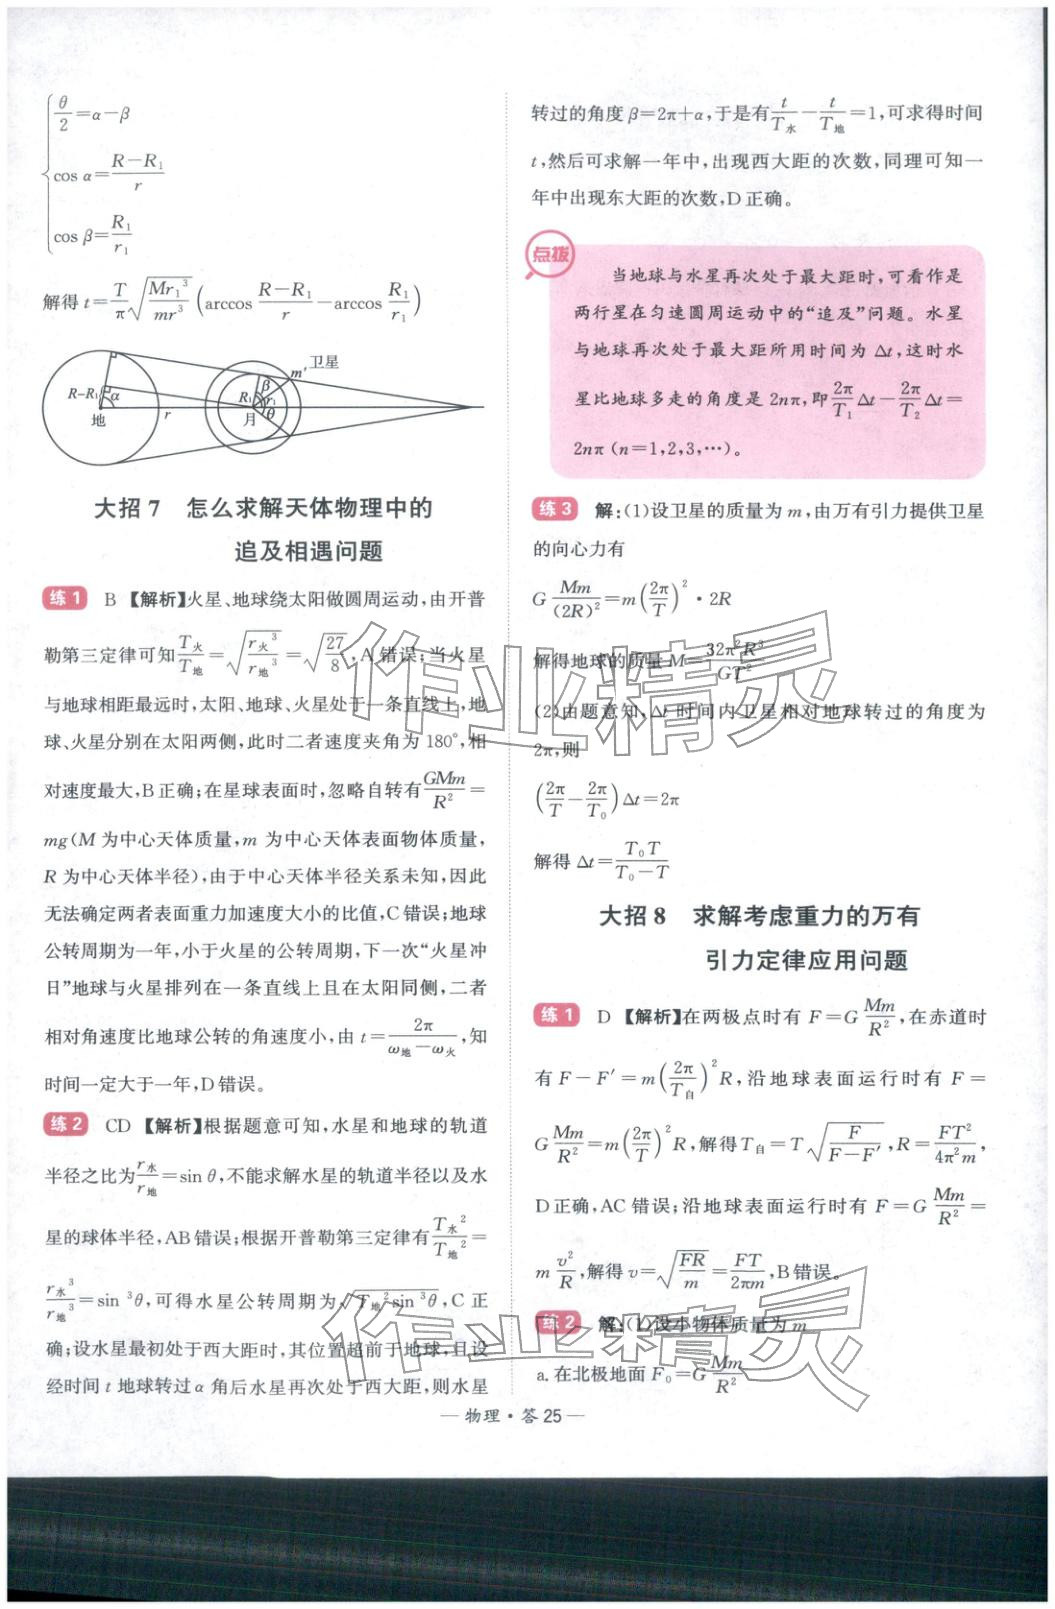 θ/2=α-β
cos α=(R-R₁)/r
cos β=R₁/r₁
解得 t=T/π √(Mr₁³/mr³) (arccos (R-R₁)/r - arccos R₁/r₁)
卫星
m'
R-R₁
α
地
r
β
R₁
r₁
θ
月
大招 7 怎么求解天体物理中的
追及相遇问题
练 1 B 【解析】火星、地球绕太阳做圆周运动,由开普
勒第三定律可知 T火/T地=√(r火³/r地³)=√(27/8),A 错误;当火星
与地球相距最远时,太阳、地球、火星处于一条直线上,地
球、火星分别在太阳两侧,此时二者速度夹角为 180°,相
对速度最大,B 正确;在星球表面时,忽略自转有 GMm/R²=
mg(M 为中心天体质量,m 为中心天体表面物体质量,
R 为中心天体半径),由于中心天体半径关系未知,因此
无法确定两者表面重力加速度大小的比值,C 错误;地球
公转周期为一年,小于火星的公转周期,下一次“火星冲
日”地球与火星排列在一条直线上且在太阳同侧,二者
相对角速度比地球公转的角速度小,由 t=2π/(ω地-ω火),知
时间一定大于一年,D 错误。
练 2 CD 【解析】根据题意可知,水星和地球的轨道
半径之比为 r水/r地=sin θ,不能求解水星的轨道半径以及水
星的球体半径,AB 错误;根据开普勒第三定律有 T水²/T地²=
r水³/r地³=sin ³θ,可得水星公转周期为√(T地²sin ³θ),C 正
确;设水星最初处于西大距时,其位置超前于地球,且设
经时间 t 地球转过 α 角后水星再次处于西大距,则水星
转过的角度 β=2π+α,于是有 t/T水-t/T地=1,可求得时间
t,然后可求解一年中,出现西大距的次数,同理可知一
年中出现东大距的次数,D 正确。
点拨
当地球与水星再次处于最大距时,可看作是
两行星在匀速圆周运动中的“追及”问题。水星
与地球再次处于最大距所用时间为 Δt,这时水
星比地球多走的角度是 2nπ,即 2π/T₁ Δt-2π/T₂ Δt=
2nπ (n=1,2,3,…)。
练 3 解:(1)设卫星的质量为 m,由万有引力提供卫星
的向心力有
G Mm/(2R)²=m(2π/T)²·2R
解得地球的质量 M=32π²R³/GT²
(2)由题意知,Δt 时间内卫星相对地球转过的角度为
2π,则
(2π/T-2π/T₀)Δt=2π
解得 Δt=T₀T/(T₀-T)
大招 8 求解考虑重力的万有
引力定律应用问题
练 1 D 【解析】在两极点时有 F=G Mm/R²,在赤道时
有 F-F'=m(2π/T自)²R,沿地球表面运行时有 F=
G Mm/R²=m(2π/T)²R,解得 T自=T√(F/(F-F')),R=FT²/4π²m,
D 正确,AC 错误;沿地球表面运行时有 F=G Mm/R²=
m v²/R,解得 v=√(FR/m)=FT/2πm,B 错误。
练 2 解:(1)设小物体质量为 m
a. 在北极地面 F₀=G Mm/R²
— 物理·答 25 —
作业精灵
作业精灵